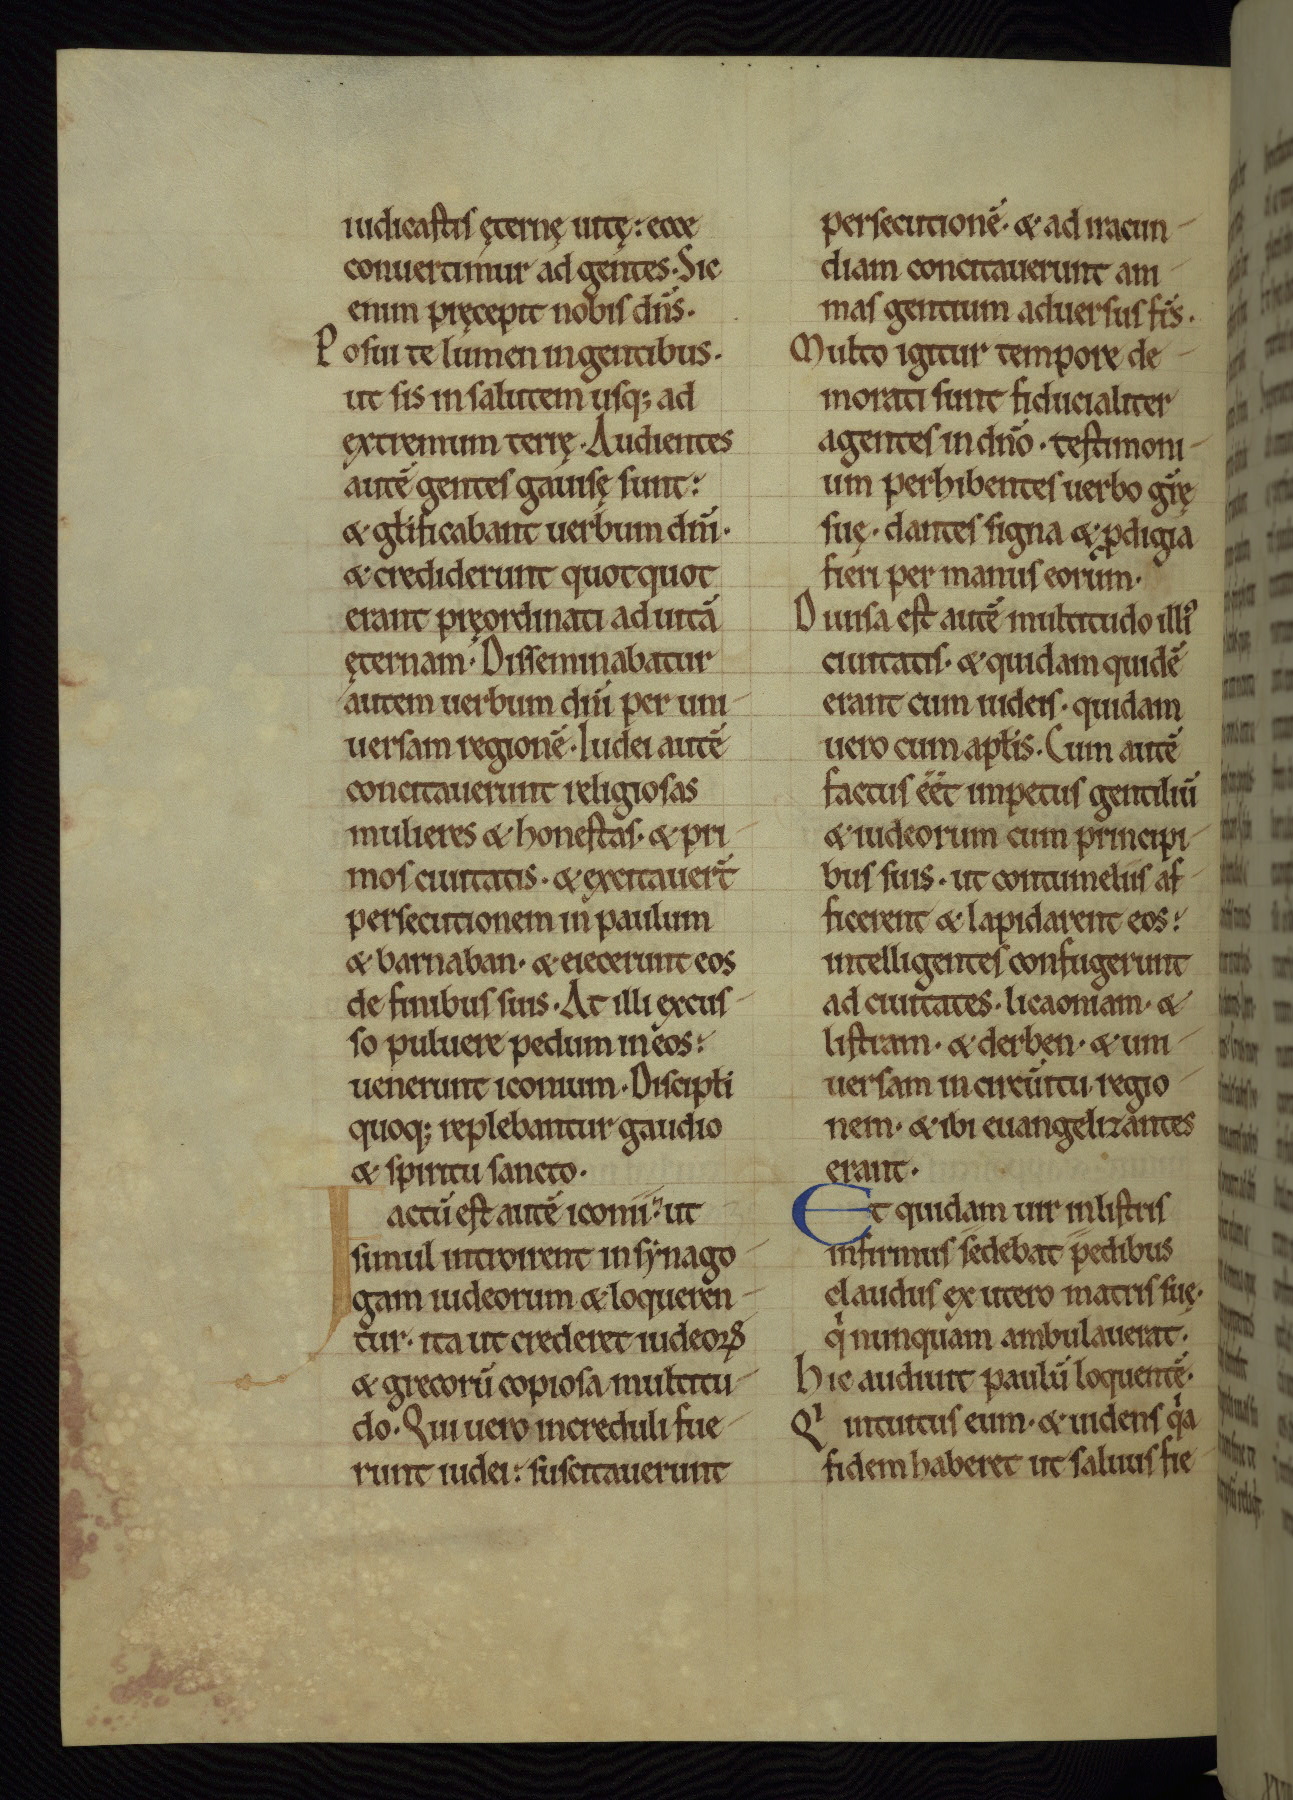 iudicastis ęternę uitę: ecce
conuertimur ad gentes. Sic
enim pręcepit nobis dn̄s.
Posui te lumen in gentibus.
ut sis in salutem usq; ad
extremum terrę. Audientes
autē gentes gauisę sunt:
& gl̄ificabant uerbum dn̄i.
& crediderunt quotquot
erant pręordinati ad uitā
ęternam. Disseminabatur
autem uerbum dn̄i per uni
uersam regionē. Iudei autē
concitauerunt religiosas
mulieres & honestas. & pri
mos ciuitatis. & excitauer̄t
persecutionem in paulum
& barnaban. & eiecerunt eos
de finibus suis. At illi excus
so puluere pedum in eos:
uenerunt iconium. Discipl̄i
quoq; replebantur gaudio
& spiritu sancto.
Factū est autē iconii: ut
simul introirent in synago
gam iudeorum & loqueren
tur. ita ut crederet iudeoꝝ
& grecorū copiosa multitu
do. Qui uero increduli fue
runt iudei: suscitauerunt
persecutionē. & ad iracun
diam concitauerunt ani
mas gentium aduersus fr̄s.
Multo igitur tempore de
morati sunt fiducialiter
agentes in dn̄o. testimoni
um perhibentes uerbo gr̄ę
suę. dantes signa & ꝓdigia
fieri per manus eorum.
Diuisa est autē multitudo illiꝰ
ciuitatis. & quidam quidē
erant cum iudeis. quidam
uero cum apl̄is. Cum autē
factus ēēt impetus gentiliū
& iudeorum cum principi
bus suis. ut contumeliis af
ficerent & lapidarent eos:
intelligentes confugerunt
ad ciuitates. licaoniam. &
listram. & derben. & uni
uersam in circūitu regio
nem. & ibi euangelizantes
erant.
Et quidam uir in listris
infirmus sedebat pedibus
claudus ex utero matris suę.
qͥ nunquam ambulauerat.
Hic audiuit paulū loquentē.
Qͥ intuitus eum. & uidens qͥa
fidem haberet ut saluus fie